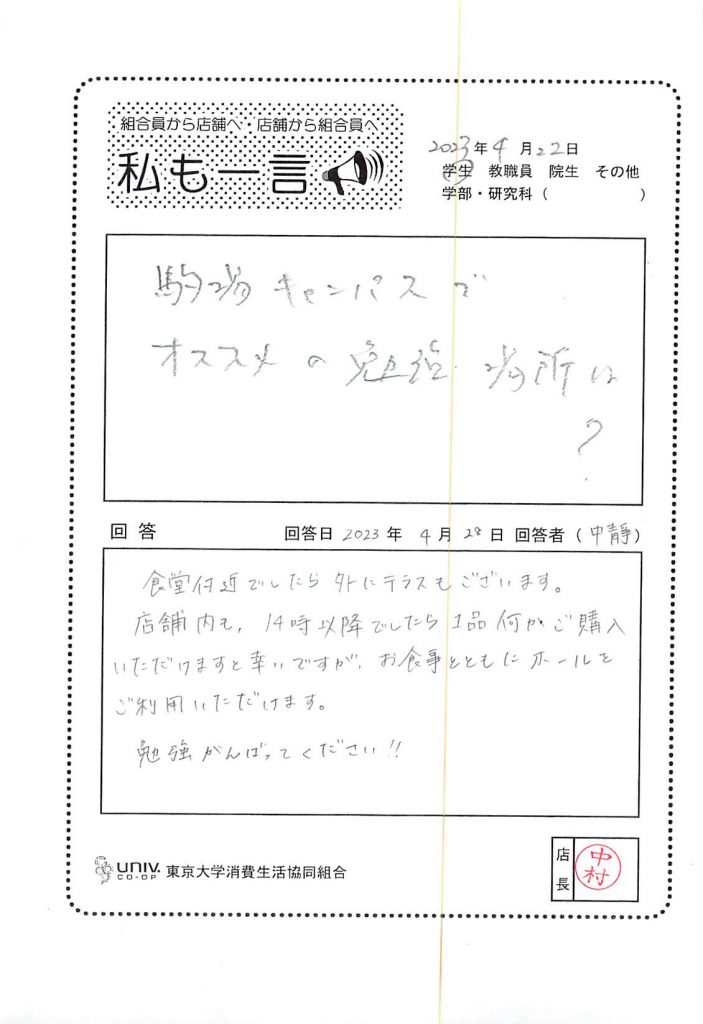 組合員から店舗へ・店舗から組合員へ
私も一言
2023年4月22日
学生 教職員 院生 その他
学部・研究科（ ）
駒場キャンパスで
オススメの勉強場所は
？
回答 回答日 2023年 4月 28日 回答者（中静）
食堂付近でしたら外にテラスもございます。
店舗内も、14時以降でしたら1品何かご購入
いただけますと幸いですが、お食事とともにホールを
ご利用いただけます。
勉強がんばってください!!
UNIV. CO-OP 東京大学消費生活協同組合
店長 中村